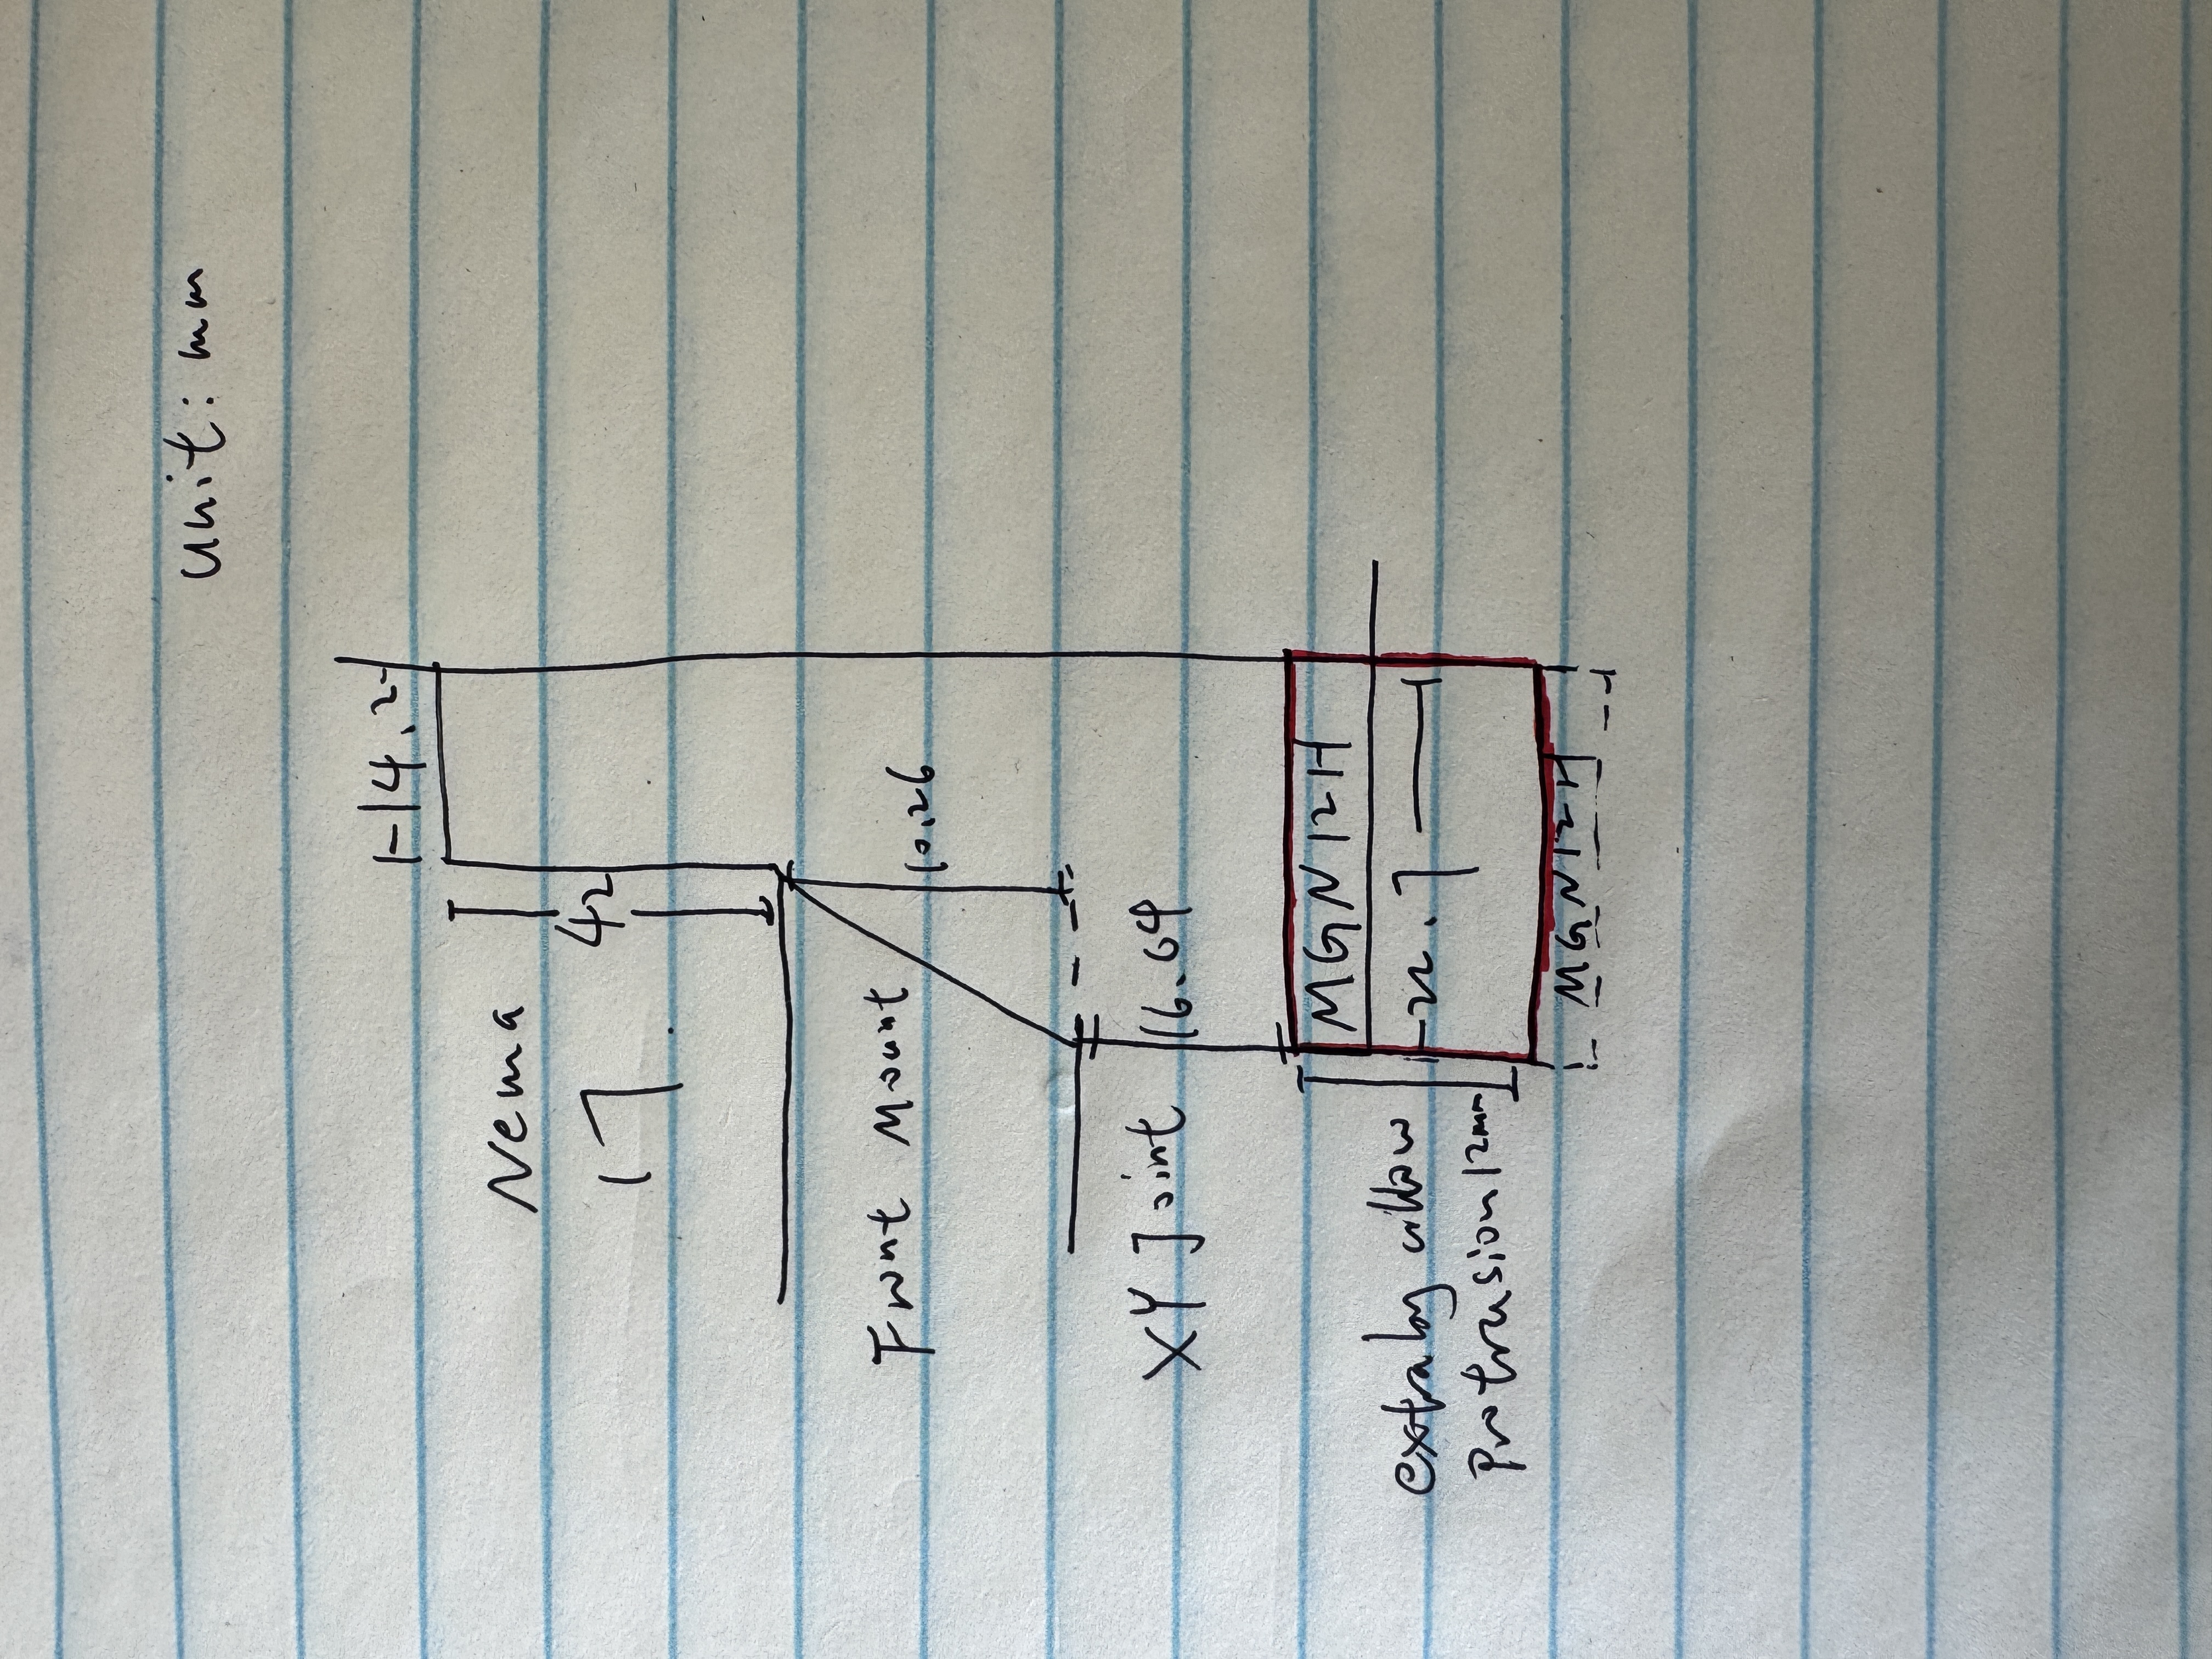 Unit: mm
14.2
Nema
17.
42
Front Mount
10.26
XY Joint
16.04
MGN12H
22.7
Protrusion 12mm
MGN12H